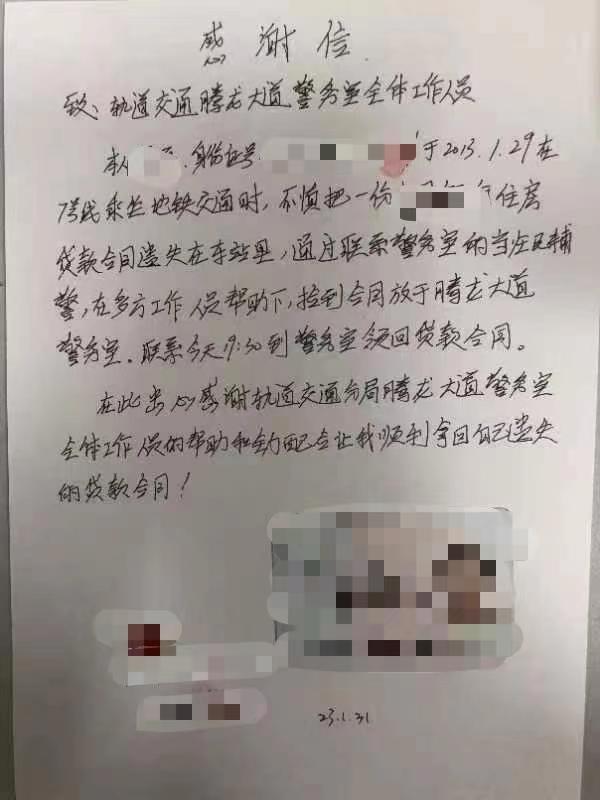 感谢信
致、轨道交通腾龙大道警务室全体工作人员
本人 身份证号 于2013.1.29在
7号线乘坐地铁交通时，不慎把一份 住房
贷款合同遗失在车站里，通过联系警务室的当庄民辅
警，在多方工作人员帮助下，捡到合同放于腾龙大道
警务室。联系今天9:30到警务室领回贷款合同。
在此衷心感谢轨道交通分局腾龙大道警务室
全体工作人员的帮助和全力配合让我顺利拿回自己遗失
的贷款合同！
23.1.31